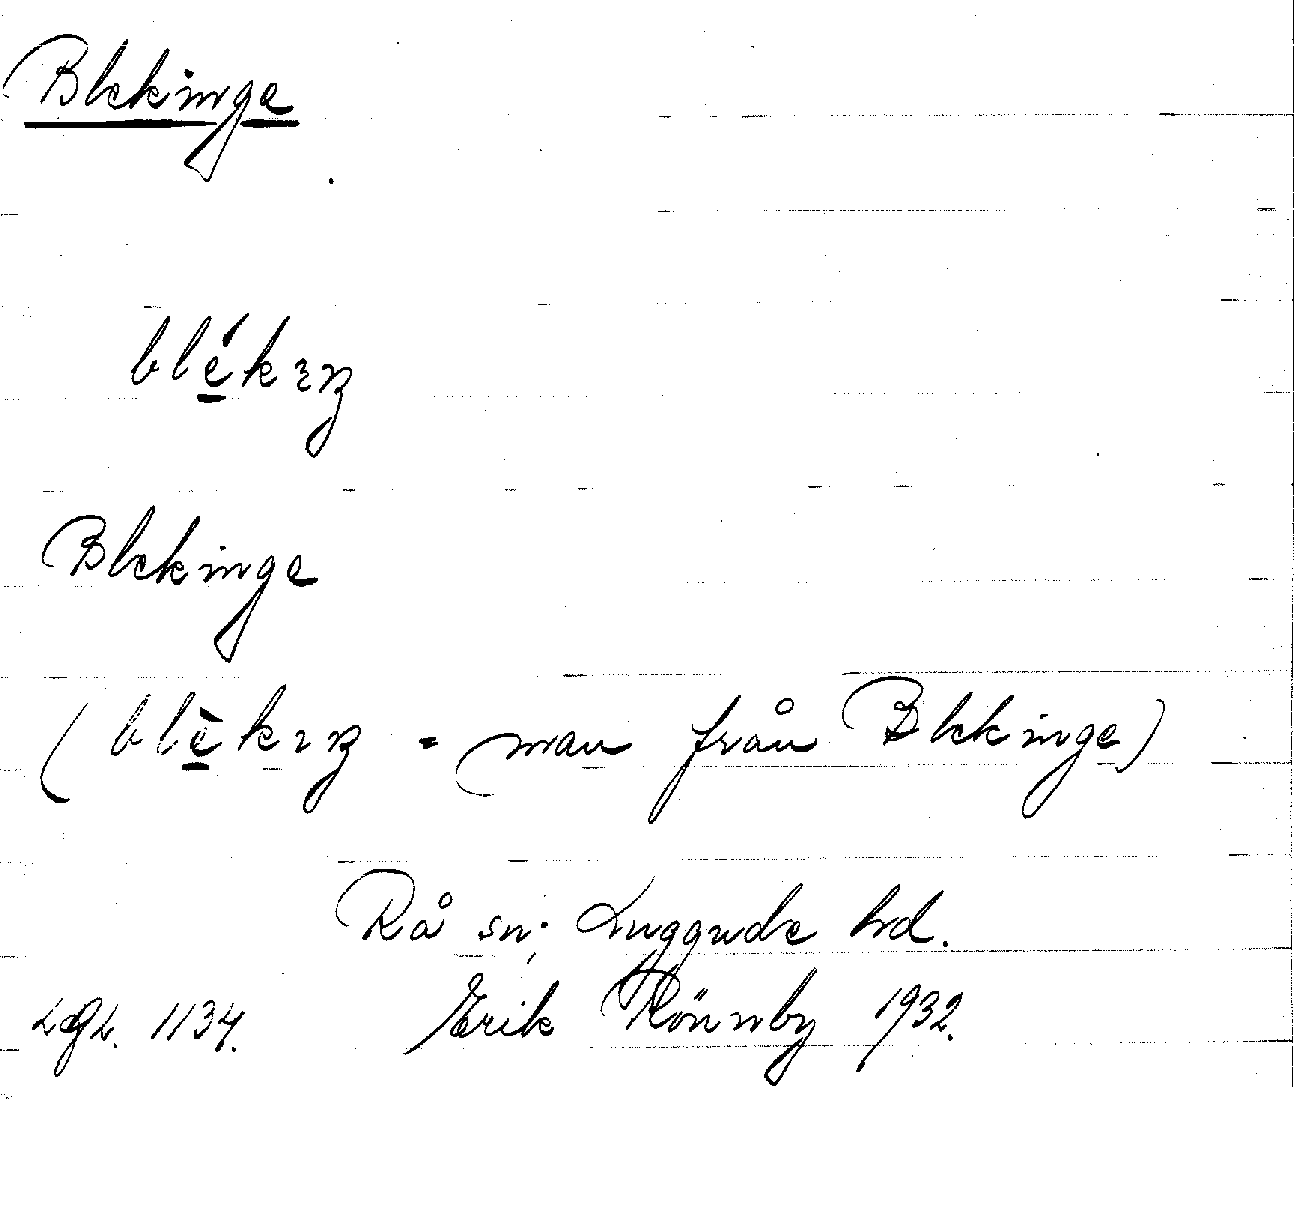 Blekinge
blé̱kıŋ
Blekinge
(blè̱kıŋ = man från Blekinge)
Rå sn; Luggude hd.
LGL. 1134. Erik Rönnby 1932.